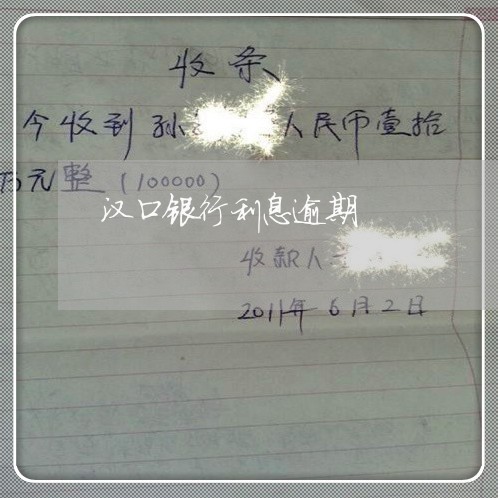 收条
今收到孙 人民币壹拾
万元整（100000）
汉口银行利息逾期
收款人
2011年6月2日